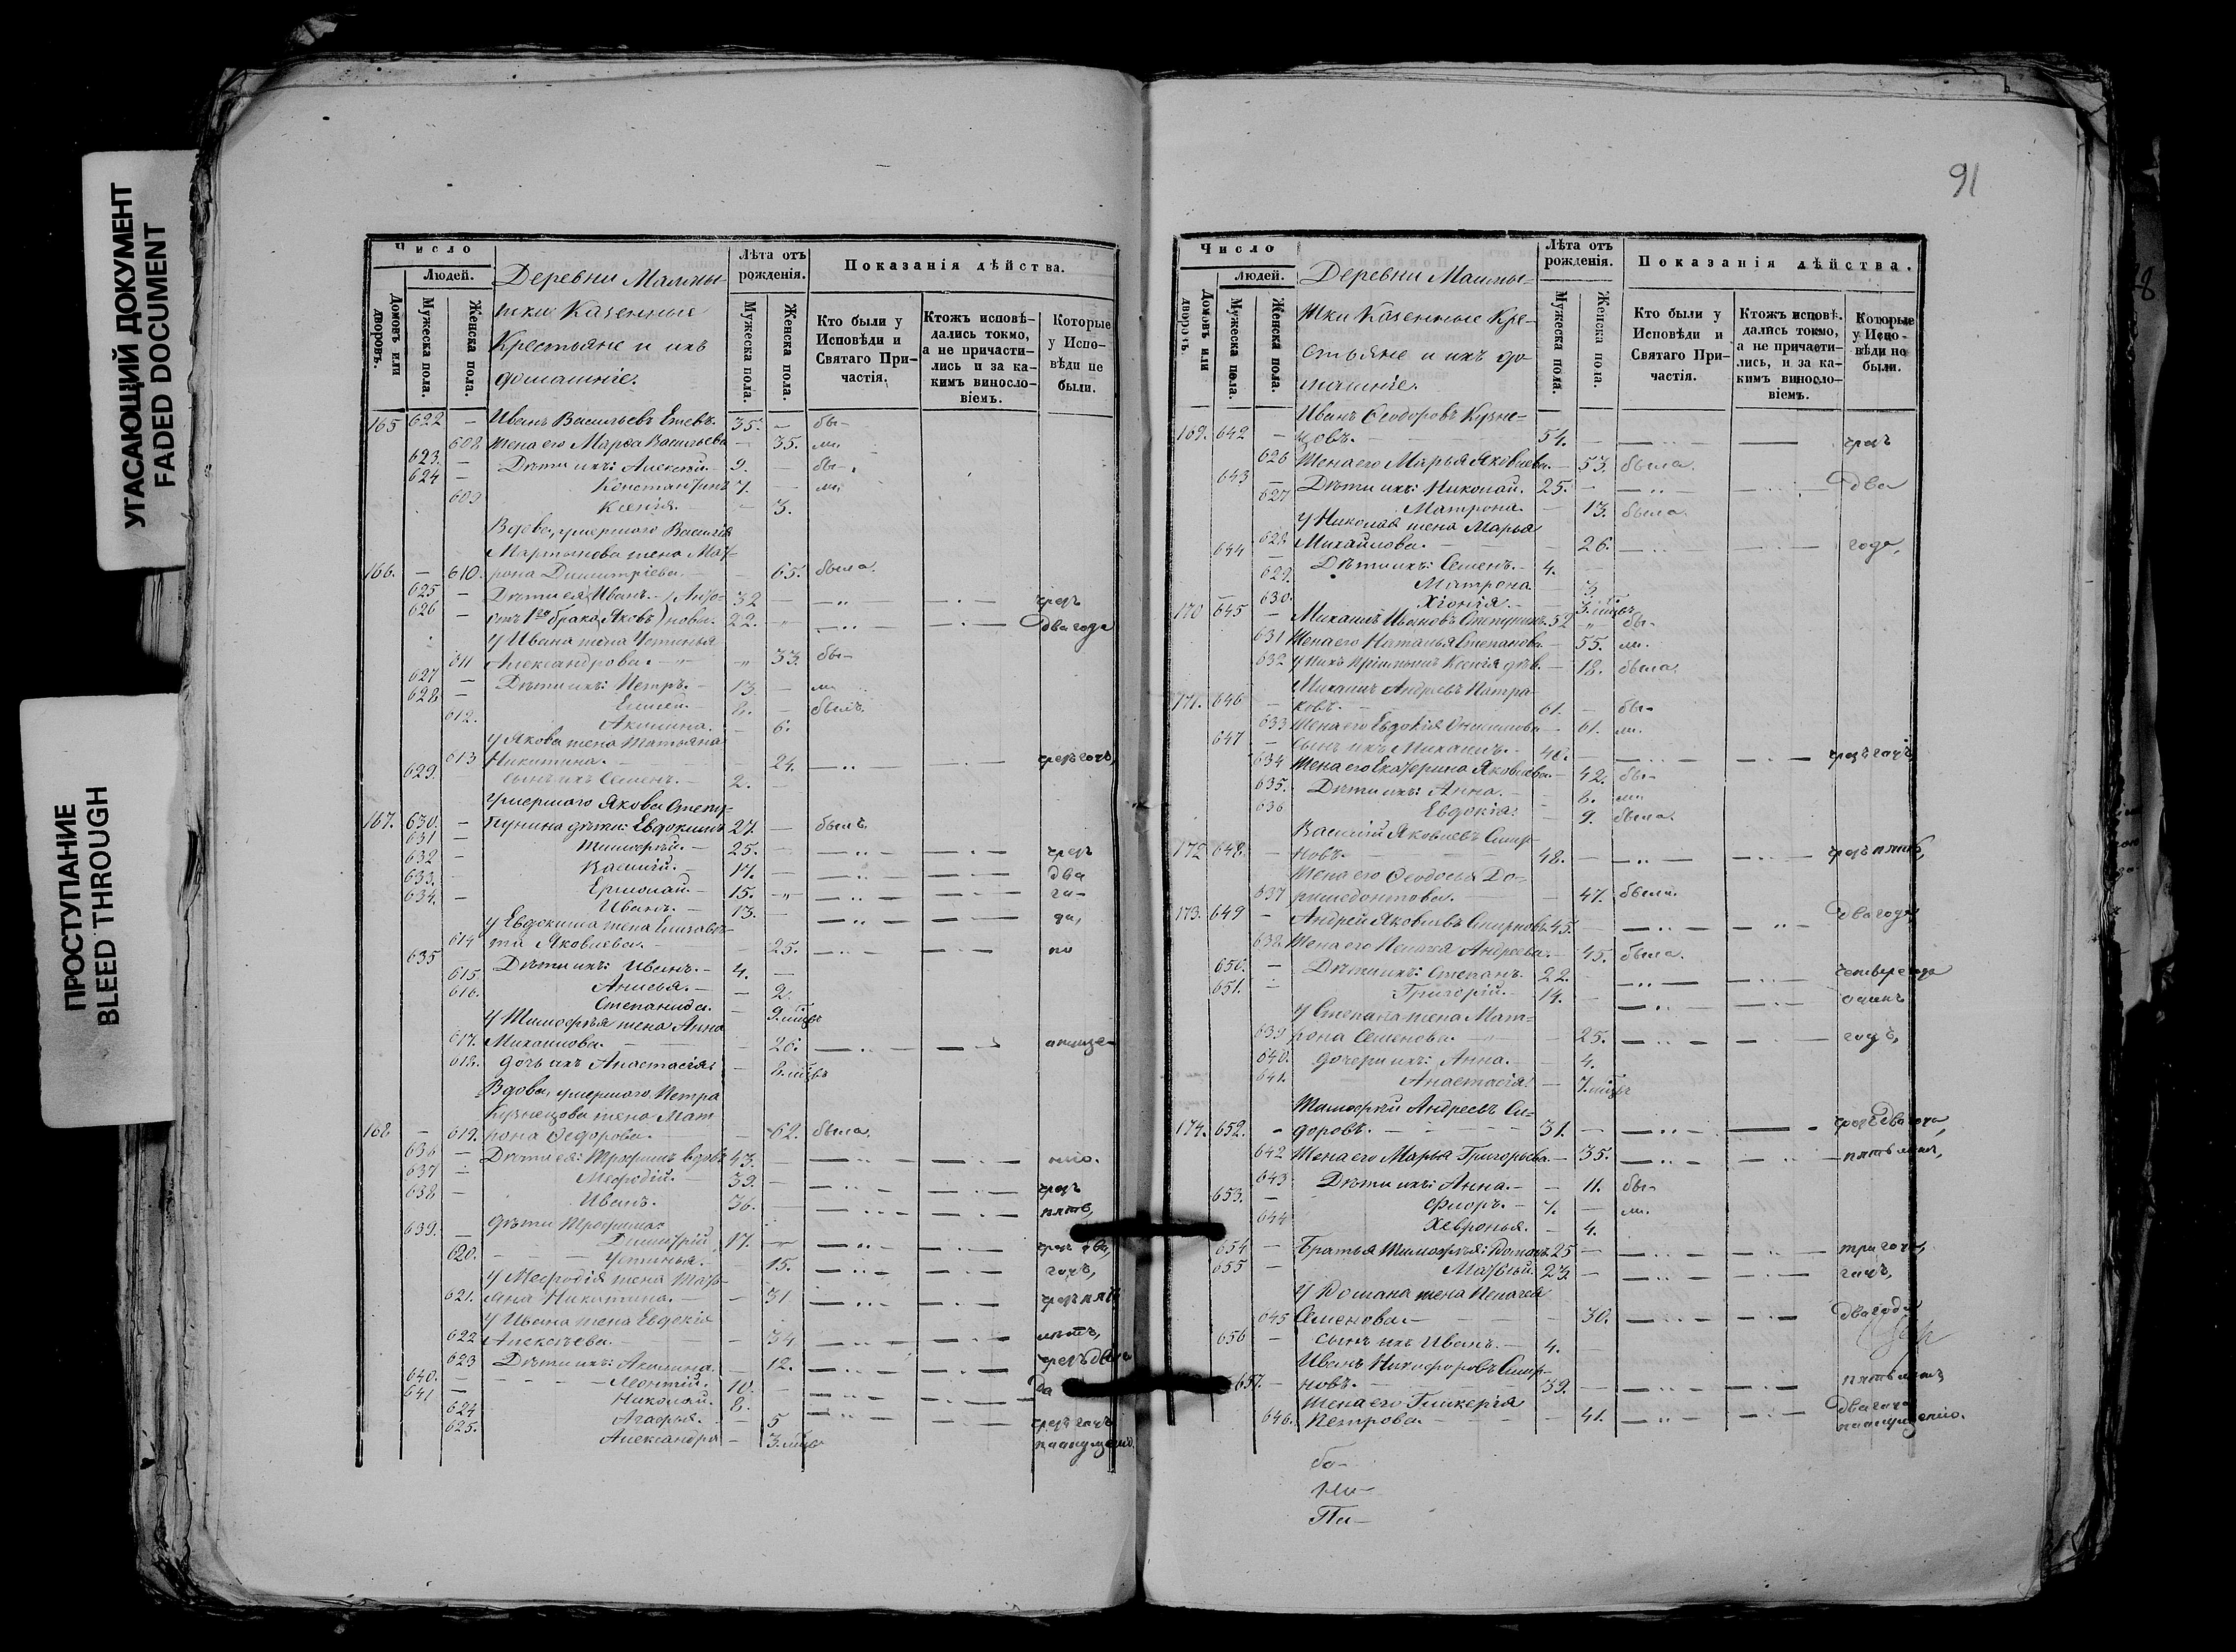 УГАСАЮЩИЙ ДОКУМЕНТ
FADED DOCUMENT
ПРОСТУПАНИЕ
BLEED THROUGH
Число
Людей.
Домовъ или дворовъ.
Мужеска пола.
Женска пола.
Деревни
Казенные
Крестьяне и ихъ
домашніе.
Лѣта отъ рожденія.
Мужеска пола.
Женска пола.
Показанія дѣйства.
Кто были у Исповѣди и Святаго Причастія.
Ктожъ исповѣдались токмо, а не причастились и за какимъ винословіемъ.
Которые у Исповѣди не были.
165 622 — Иванъ Васильевъ 35. — бы-
608 жена его Марѳа Васильева — 35. ли
623. — Дѣти ихъ: Алексѣй. 9. — бы-
624 — Константинъ 7. — ли
609 Ксенія. — 3.
Вдова, умершаго Василія
Мартынова жена Мат-
166. — 610. рона Димитріева. — 65. была.
625 — Дѣти ея Иванъ. 32 — чрезъ
626 — отъ 1го брака Яковъ) новы. 22. два года
У Ивана жена Устинья
611 Александрова. 33. бы-
627 — Дѣти ихъ: Петръ. 13. — ли
628 — 8. — былъ.
612. Акилина. — 6.
У Якова жена Татьяна
613 Никитина. 24. чрезъ годъ,
629. Сынъ ихъ Семенъ. 2.
Умершаго Якова Степу-
167. 630. — пунина дѣти: Евдокимъ 27. — былъ.
631 — Тимоѳей. 25. чрезъ
632 — Василій. 17. два
633. — Ермолай. 15. го-
634. — Иванъ. 13. да,
У Евдокима жена Елизаве-
614 та Яковлева. 25. по
635 Дѣти ихъ: Иванъ. 4. —
615. Анисья. — 2.
616. Степанида. — 9. мцвъ
У Тимоѳея жена Анна
617. Михайлова. 26.
618. дочь ихъ Анастасія — 8. мцвъ
Вдова, умершаго Петра
Кузнецова жена Мат
168 — 619. рона Ѳедорова. — 62. была.
636 — Дѣти ея: Трофимъ вдовъ 43.
637 — Меѳодій. 39. чрезъ
638 — Иванъ. 36. пять,
Дѣти Трофима:
639. — Димитрій 17. чрезъ два,
620. Устинья. 15. годъ,
У Меѳодія жена Тать-
621. яна Никитина. — 31 чрезъ пять
У Ивана жена Евдокія
622 Алексѣева. — 34 лѣтъ,
623 Дѣти ихъ: Акилина. — 12. чрезъ два го
640. — Леонтій. 10. да
641 — Николай. 8.
624 Агафья. — 5 чрезъ годъ
625. Александра — 3. мцвъ по опущенію.
91
Число
Людей.
Домовъ или дворовъ.
Мужеска пола.
Женска пола.
Деревни
Казенные Кре-
стьяне и ихъ до
машніе.
Лѣта отъ рожденія.
Мужеска пола.
Женска пола.
Показанія дѣйства.
Кто были у Исповѣди и Святаго Причастія.
Ктожъ исповѣдались токмо, а не причастились, и за какимъ винословіемъ.
Которые у Исповѣди не были.
Иванъ Ѳеодоровъ Кузне-
169. 642 — цовъ. 54. — чрезъ
626 Жена его Марья Яковлева. — 53. была.
643 — Дѣти ихъ: Николай. 25. — два
627 Матрона. — 13. была.
У Николая жена Марья
628. Михайлова. — 26. года,
644 Дѣти ихъ: Семенъ. 4. —
629. Матрона — 3
630. Хіонія. 3. мцвъ
170 645 — Михаилъ Ивановъ 52 — бы-
631 Жена его Наталья Степанова. — 55. ли.
632 Ксенія — 18. была.
Михаилъ Андреевъ Патра-
171. 646 — ковъ. 61. — бы-
633 Жена его Евдокія — 61. ли.
647 — Сынъ ихъ Михаилъ. чрезъ годъ
634 Жена его Екатерина Яковлева. — 42. бы-
635. Дѣти ихъ: Анна. — 8. ли
636 Евдокія. — 9. была.
Василій Яковлевъ Смир-
172 648. — новъ. 48. чрезъ пять,
Жена его Ѳеодосья До-
637 римедонтова. — 47. была.
173. 649 — Андрей Яковлевъ Смирновъ 45. два года,
638 Жена его Пелагея Андреева. — 45. была.
650. — Дѣти ихъ: Степанъ. 22. четыре года
651. — Григорій. 14. одинъ
У Степана жена Мат-
639 рона Семенова. 25. годъ,
640. дочери ихъ: Анна. — 4.
641. Анастасія. — 7. мцвъ
Тимоѳей Андреевъ Си-
174. 652. — доровъ. 31. чрезъ два года,
642 Жена его Марья Григорьева. — 35. пять лѣтъ,
643 Дѣти ихъ: Анна. — 11. бы-
653. — Флоръ. 7. — ли.
644 Хевронья. — 4.
654 — Братья Тимоѳея: Романъ 25 — три года,
655 — Матвѣй. 23. годъ,
У Романа жена Пелагея
645 Семенова. 30. два года
656 — сынъ ихъ Иванъ. 4.
Иванъ Никифоровъ Смир-
657. — новъ. 39. пять лѣтъ
Жена его Гликерія
646. Петрова. — 41. два года
по опущенію.